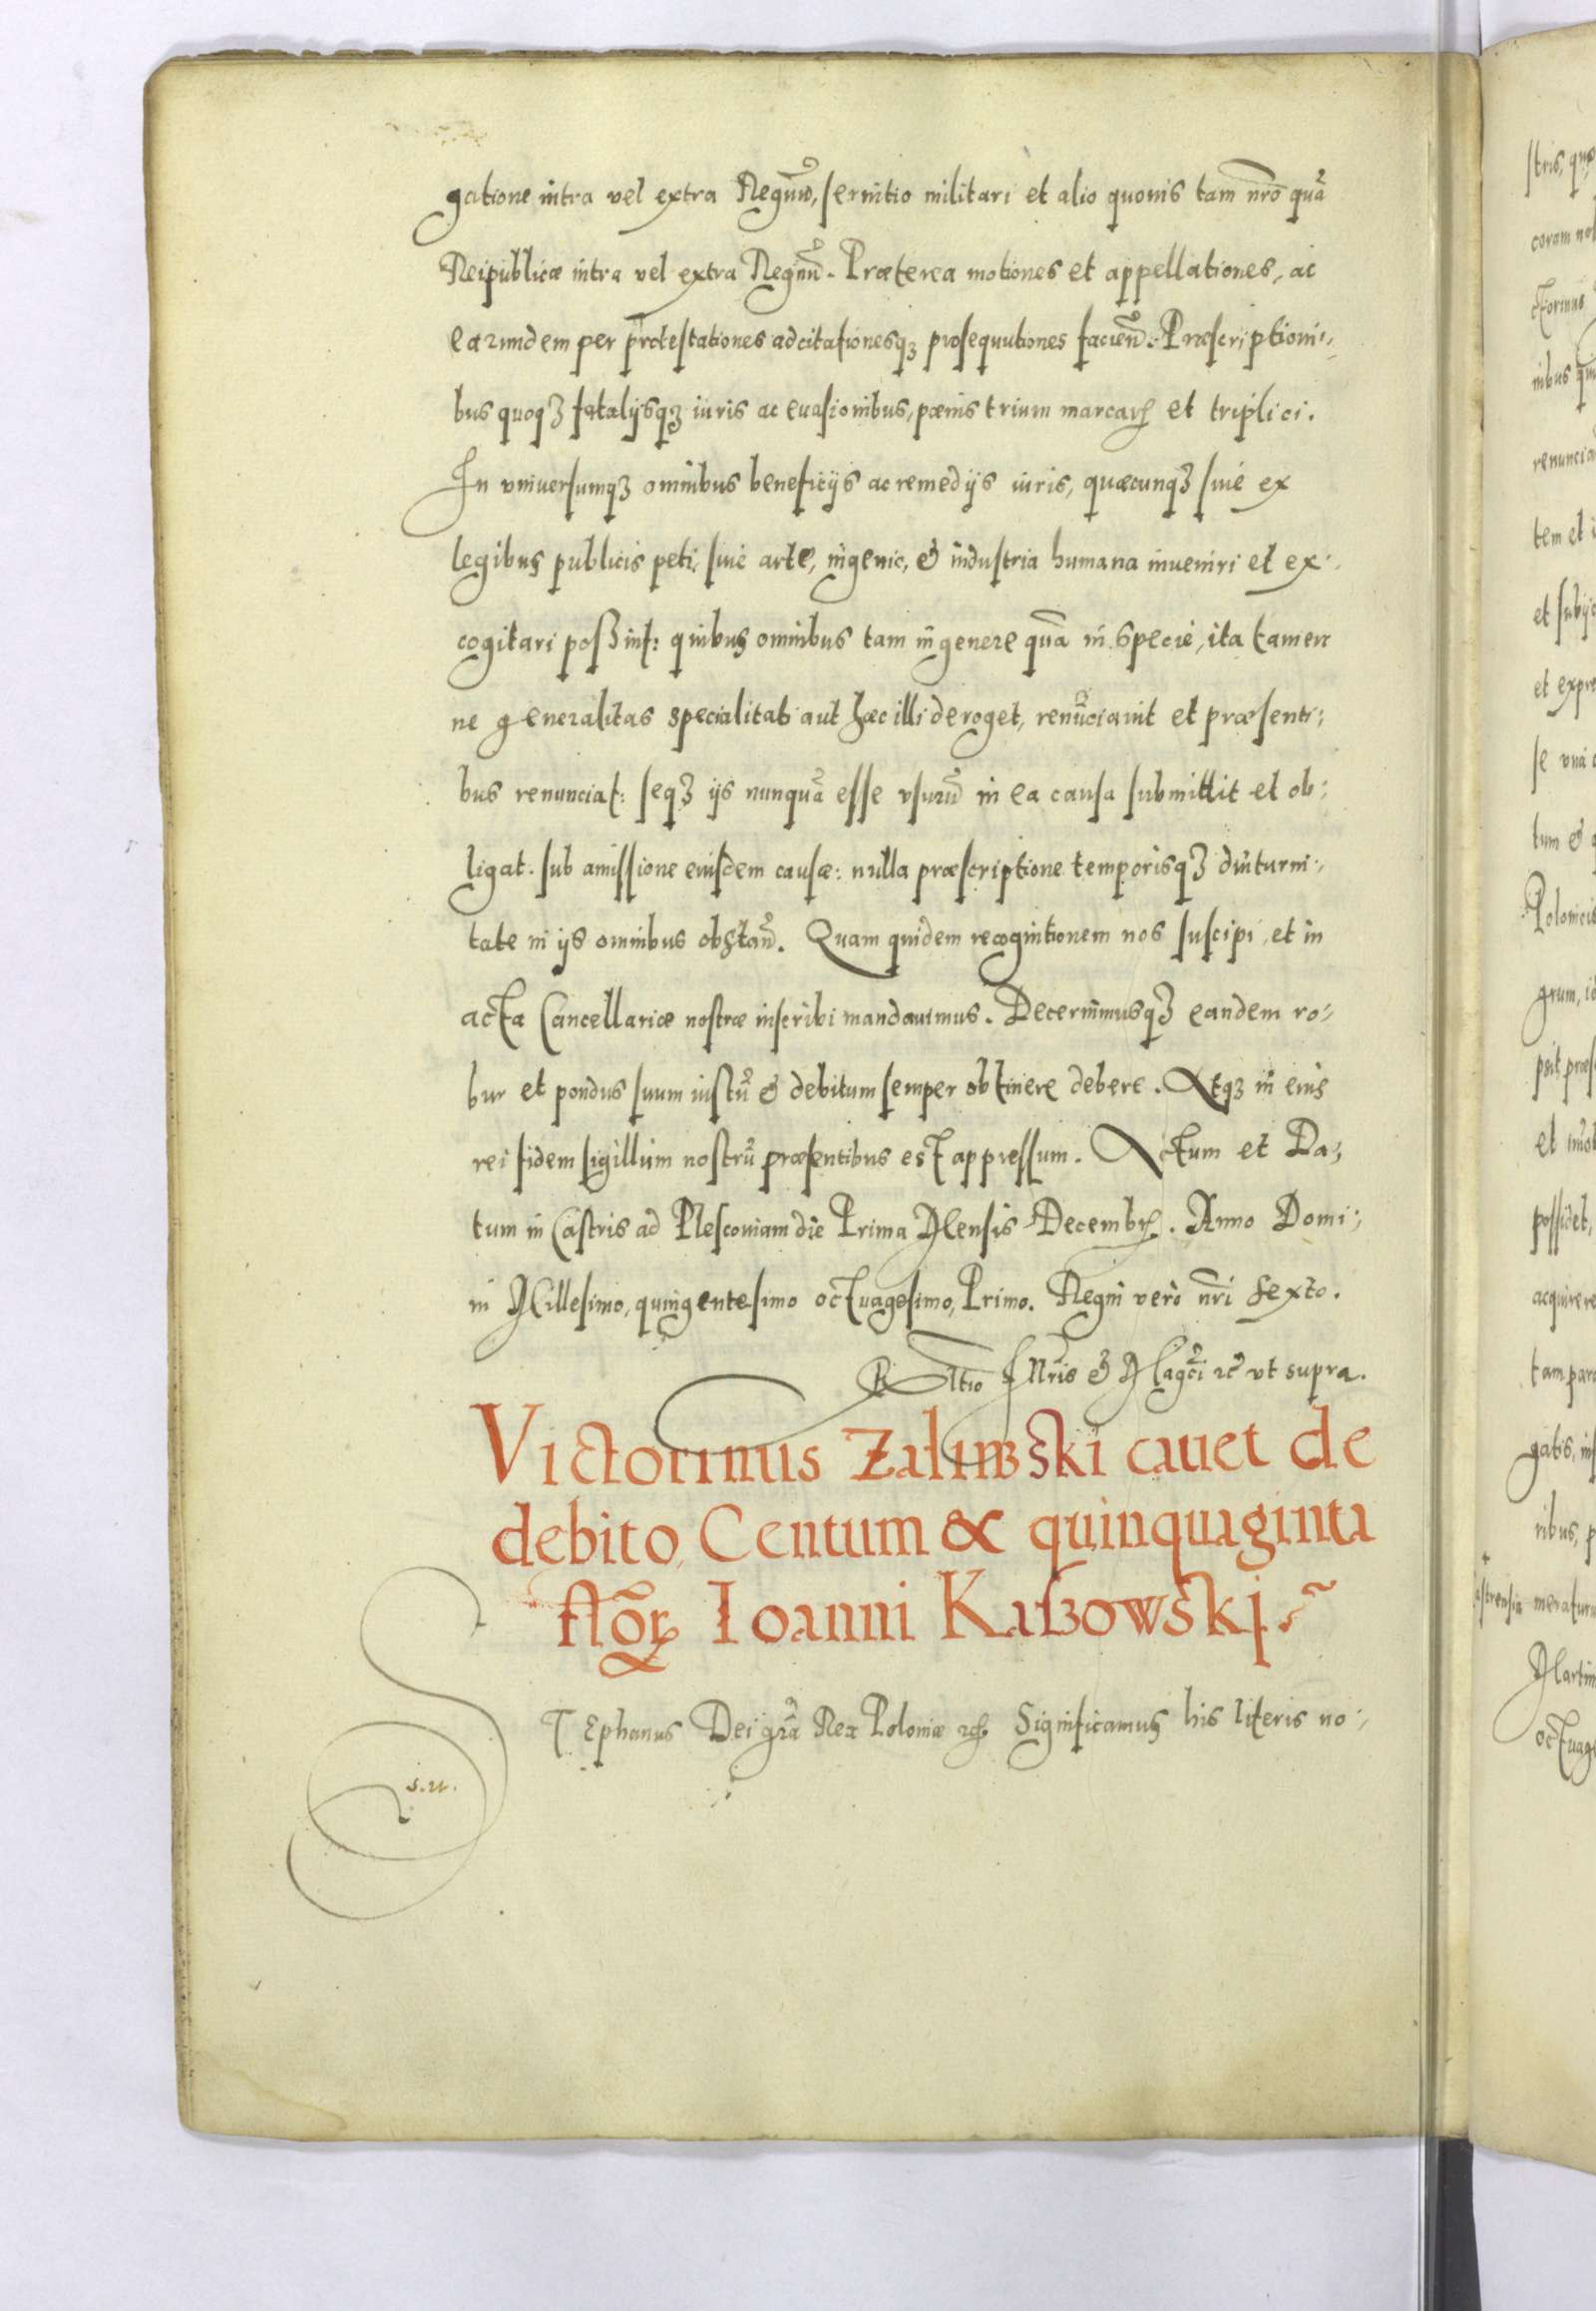 gatione intra vel extra Regnũ, seruitio militari et alio quouis tam nr̃o quã
Reipublicæ intra vel extra Regnũ. Præterea motiones et appellationes, ac
earundem per protestationes adcitationesqȝ prosequutiones faciend̃. Præscriptioni⸗
bus quoqȝ fatalijsqȝ iuris ac euasionibus, pœnis trium marcarꝝ et triplici.
In vniuersumqȝ omnibus beneficijs ac remedijs iuris, quæcunqȝ siue ex
legibus publicis peti, siue arte, ingenio, & industria humana inueniri et ex⸗
cogitari poßint: quibus omnibus tam in genere quã in specie, ita tamen
ne generalitas specialitati aut hæc illi deroget, renũciauit et præsenti⸗
bus renunciat: seqȝ ijs nunquã esse vsurũ in ea causa submittit et ob⸗
ligat. sub amissione eiusdem causæ: nulla præscriptione temporisqȝ diuturni⸗
tate in ijs omnibus obstañ. Quam quidem recognitionem nos suscipi, et in
acta Cancellariæ nostræ inscribi mandauimus. Decernimusqȝ eandem ro⸗
bur et pondus suum iustũ & debitum semper obtinere debere. Atqȝ in eius
rei fidem sigillum nostrũ præsentibus est appressum. Actum et Da⸗
tum in Castris ad Plescouiam die Prima Mensis Decembrꝭ. Anno Domi⸗
ni Millesimo, quingentesimo octuagesimo, Primo. Regni vero nr̃i Sexto.
R̃ltio Illr̃is & Magc̃i ꝛc̃ vt supra.
Victorinus Zalinßski cauet de
debito, Centum & quinquaginta
flõꝝ Ioanni Kaßowskj.
STEphanus Dei gr̃a Rex Poloniæ ꝛc̃. Significamus his literis no⸗
s.n.